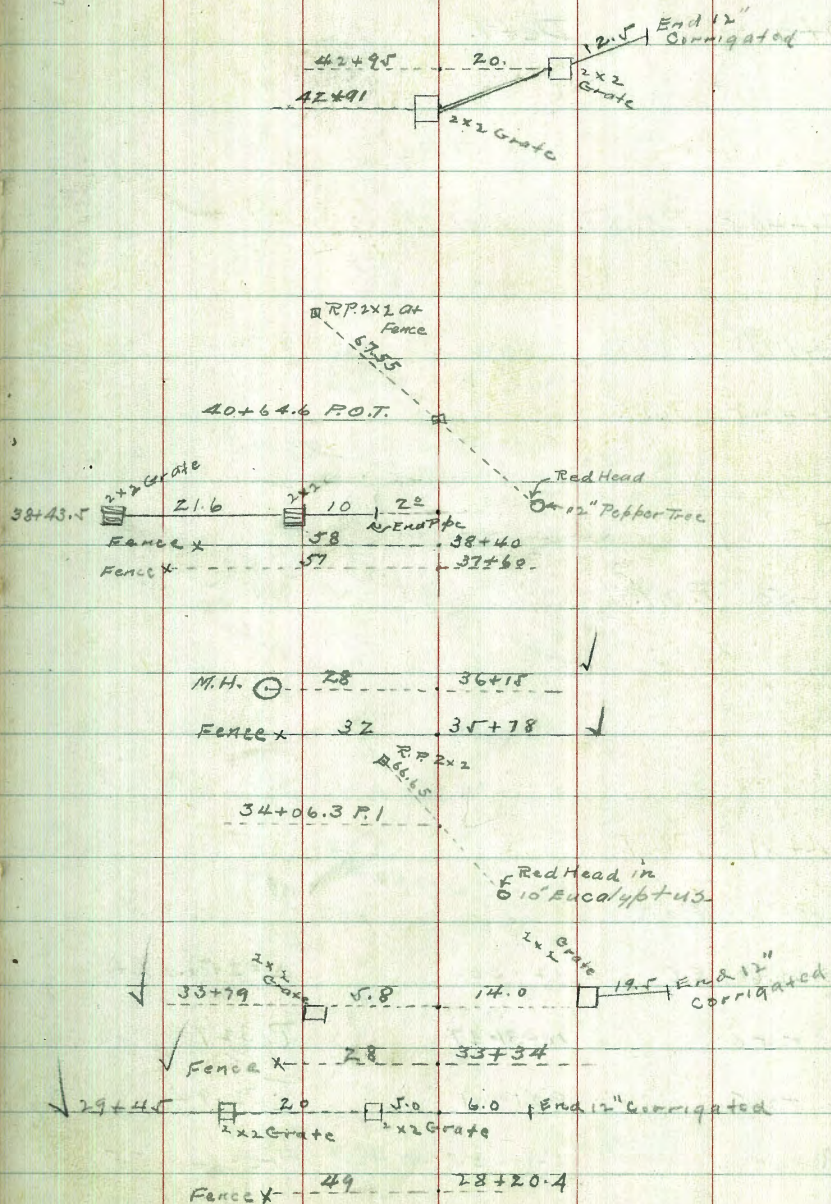 12.5 End 12"
Corrigated
42+95 20. 2x2
Grate
42+91
2x2 Grate
R.P. 2x2 at
Fence
67.55
40+64.6 P.O.T.
Red Head
12" Pepper Tree
2x2 Grate 2x2
38+43.5 21.6 10 2º
End Pipe
Fence x 58 38+40
Fence x 57 37+60
M.H. 28 36+15
Fence x 32 35+78
R.P. 2x2
66.65
34+06.3 P.I
Red Head in
10" Eucalyptus
2x2 Grate 2x2 Grate
33+79 5.8 14.0 19.5 End 12"
Corrigated
Fence x 28 33+34
29+45 20 5.0 6.0 End 12" Corrigated
2x2 Grate 2x2 Grate
Fence x 49 28+20.4